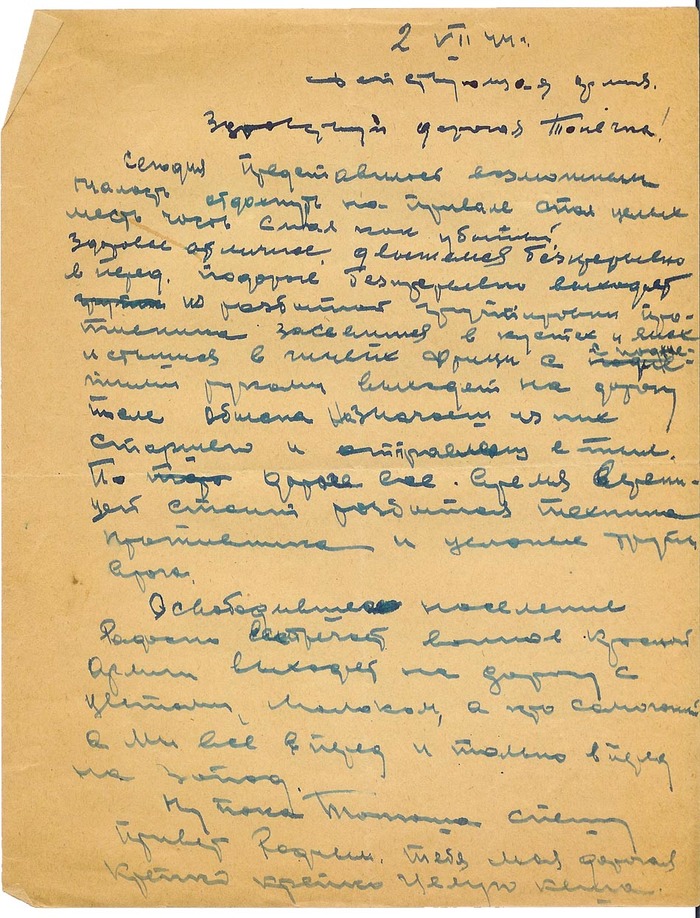 2 VII 44 г.
Действующая армия.
Здравствуй дорогая Тонечка!
Сегодня представилась возможность
малость отдохнуть на привале спал целых
шесть часов спал как убитый.
Здоровье отличное, движемся безпрерывно
в перед. по дороге безпрерывно выходят
из разбитой группировки про-
тивника засевшиеся в кустах и
в фрицы с подня-
тыми руками выходят на дорогу
после обыска назначаем из них
старшего и отправляем в тыл.
По дороге все время верени-
цей стоит разбитая техника
противника и целые трупы
врага.
Освободившееся население
Радосно встречает воинов Красной
Армии выходят на дорогу с
цветами, молоком, а кто самогоном
а мы все в перед и только в перед
на запад.
Ну пока Тонюша спешу
Привет Родным. Тебя моя дорогая
Крепко крепко целую